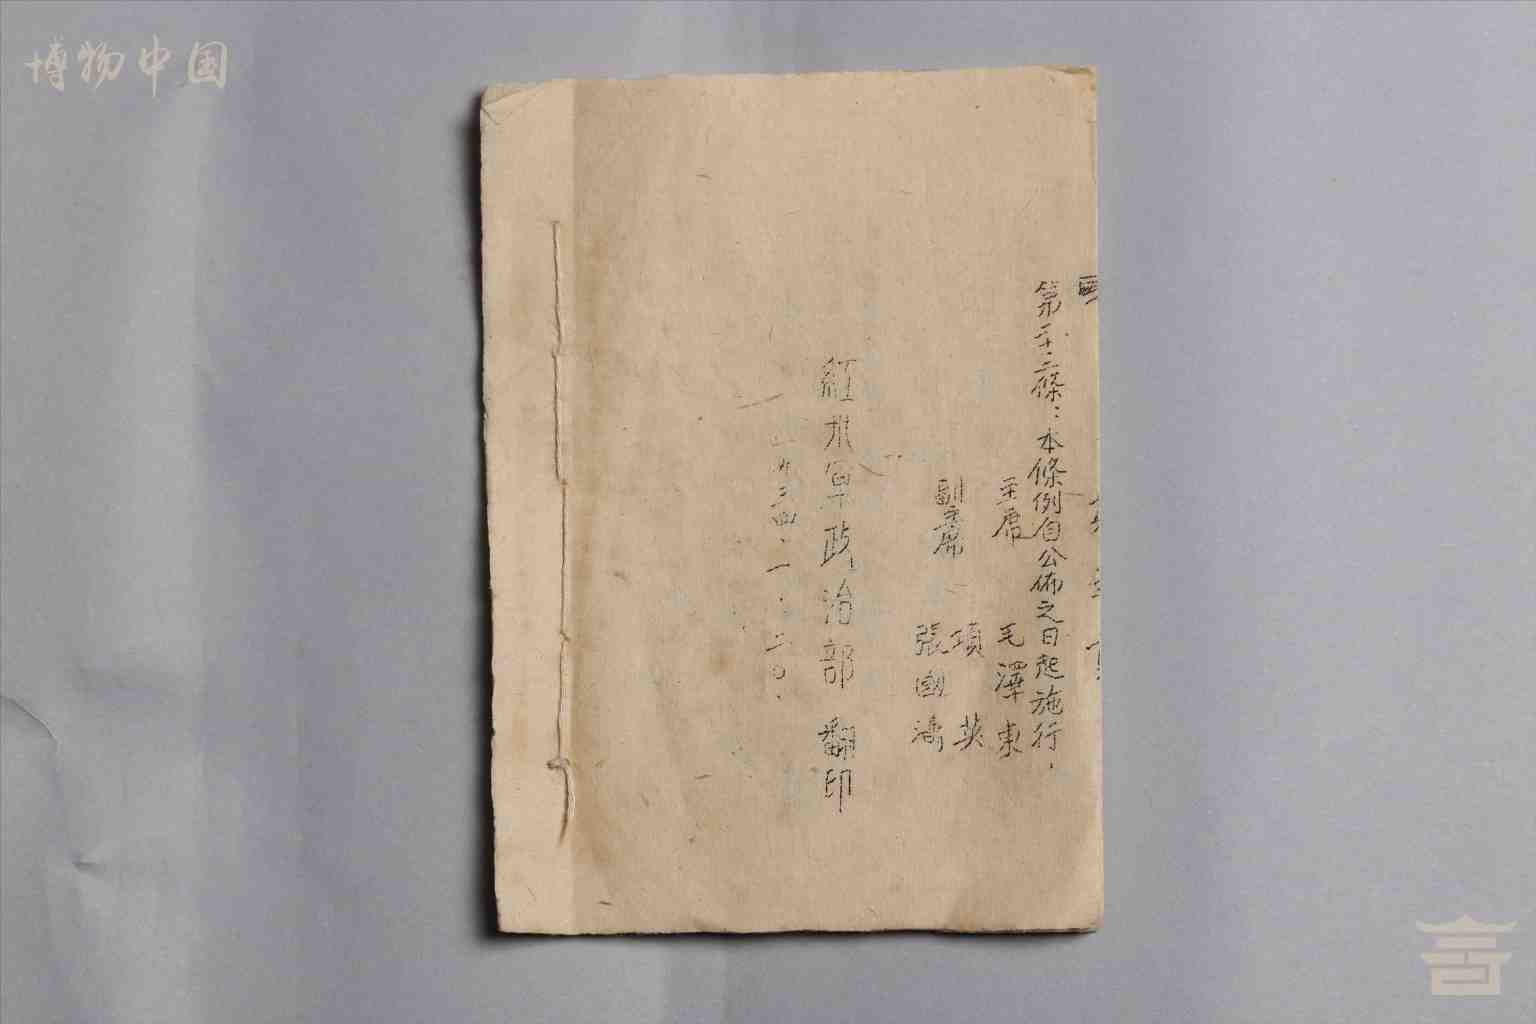 博物中国
第二十二條：本條例自公佈之日起施行．
主席 毛澤東
副主席 項英
張國濤
紅 軍政治部 翻印
一九三四．一．二〇．